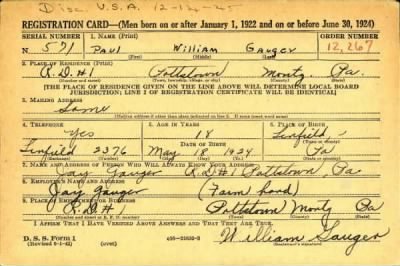 Disc. U.S.A. 12-12-45
REGISTRATION CARD—(Men born on or after January 1, 1922 and on or before June 30, 1924)
SERIAL NUMBER 1. NAME (Print) ORDER NUMBER
N 571 Paul William Gauger 12,267
2. PLACE OF RESIDENCE (Print)
R.D.#1 Pottstown Montg. Pa.
[THE PLACE OF RESIDENCE GIVEN ON THE LINE ABOVE WILL DETERMINE LOCAL BOARD
JURISDICTION; LINE 2 OF REGISTRATION CERTIFICATE WILL BE IDENTICAL]
3. MAILING ADDRESS
Same
[Mailing address if other than place indicated on line 2. If same insert word same]
4. TELEPHONE 5. AGE IN YEARS 6. PLACE OF BIRTH
Yes 18 Linfield
DATE OF BIRTH
Linfield 2376 May 18 1924 Pa
7. NAME AND ADDRESS OF PERSON WHO WILL ALWAYS KNOW YOUR ADDRESS
Jay Gauger R.D.#1 Pottstown Pa
8. EMPLOYER'S NAME AND ADDRESS
Jay Gauger (Farm hand)
9. PLACE OF EMPLOYMENT OR BUSINESS
R.D.#1 Pottstown Montg Pa
I AFFIRM THAT I HAVE VERIFIED ABOVE ANSWERS AND THAT THEY ARE TRUE.
D. S. S. Form 1
(Revised 6-1-42) (over) William Gauger